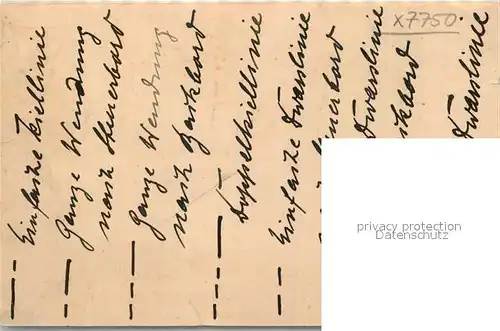 x7750
— — Einfache Kiellinie
— — Ganze Wendung
nach Steuerbord
— — — Ganze Wendung
nach Backbord
— — — — Doppelkiellinie
— — Einfache Dwarslinie
Steuerbord
Dwarslinie
Backbord
Dwarslinie
privacy protection
Datenschutz